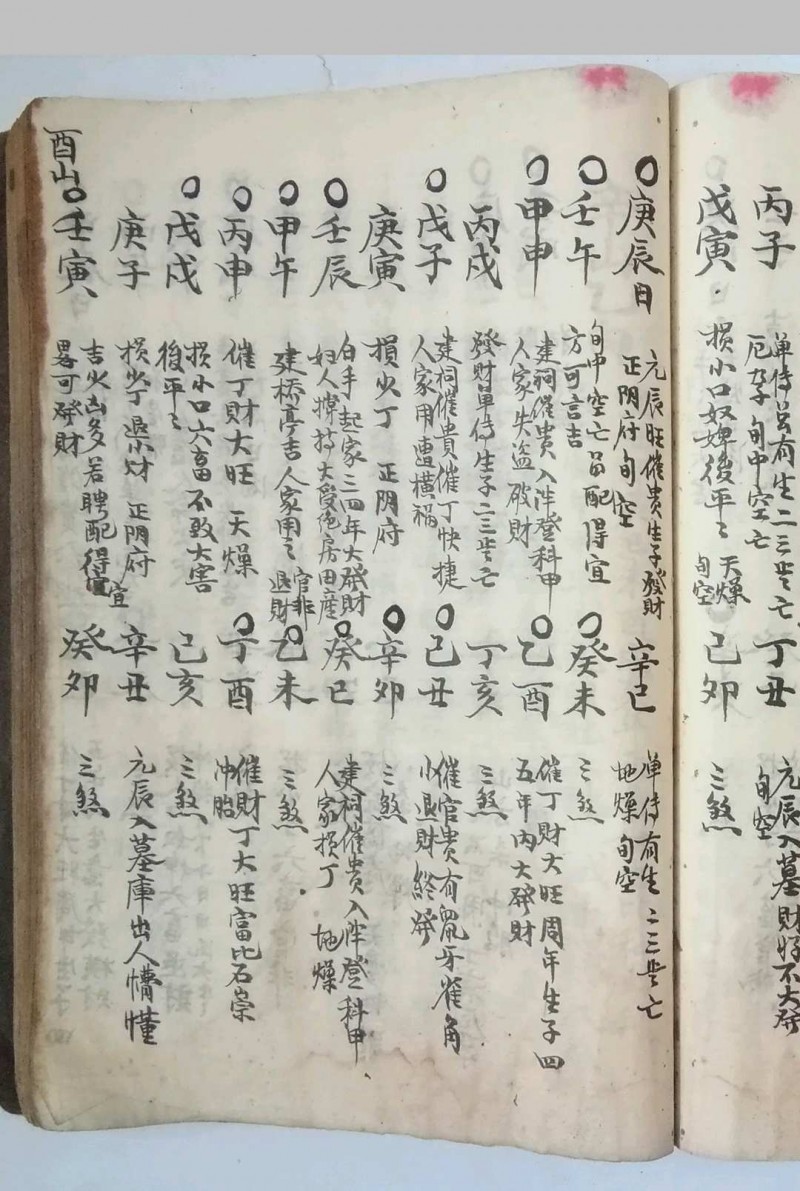 丙子
單侍
有生二三
亡
厄孕旬中空亡
丁丑
元辰入墓財好不大發
旬空
戊寅
損小口奴婢後平之 天燥
旬空
己卯
三煞
庚辰日
元辰旺催貴生子發財
正阴府旬空
辛巳
單侍有生二三
亡
地燥 旬空
壬午
旬中空亡
配得宜
方可言吉
癸未
三煞
甲申
建祠催貴入泮登科甲
人家失盜破財
乙酉
催丁財大旺周年生子四
五年內大發財
丙戌
發財單侍生子二三
亡
丁亥
三煞
戊子
建祠催貴催丁快捷
人家用遭橫禍
己丑
催官貴有鼠牙雀角
小退財終發
庚寅
損少丁 正阴府
辛卯
三煞
壬辰
白手起家三四年大發財
妇人撑持大受绝房田產
癸巳
建祠催貴入泮登科甲
人家損丁 地燥
甲午
建桥亭吉人家用之官非
退財
乙未
三煞
丙申
催丁財大旺 天燥
丁酉
催財丁大旺富比石崇
冲胎
戊戌
損小口六畜不致大害
後平之
己亥
三煞
庚子
損少丁退小財 正阴府
辛丑
元辰入墓庫出人懵懂
酉山
壬寅
吉少凶多若聘配得宜
畧可發財
癸卯
三煞